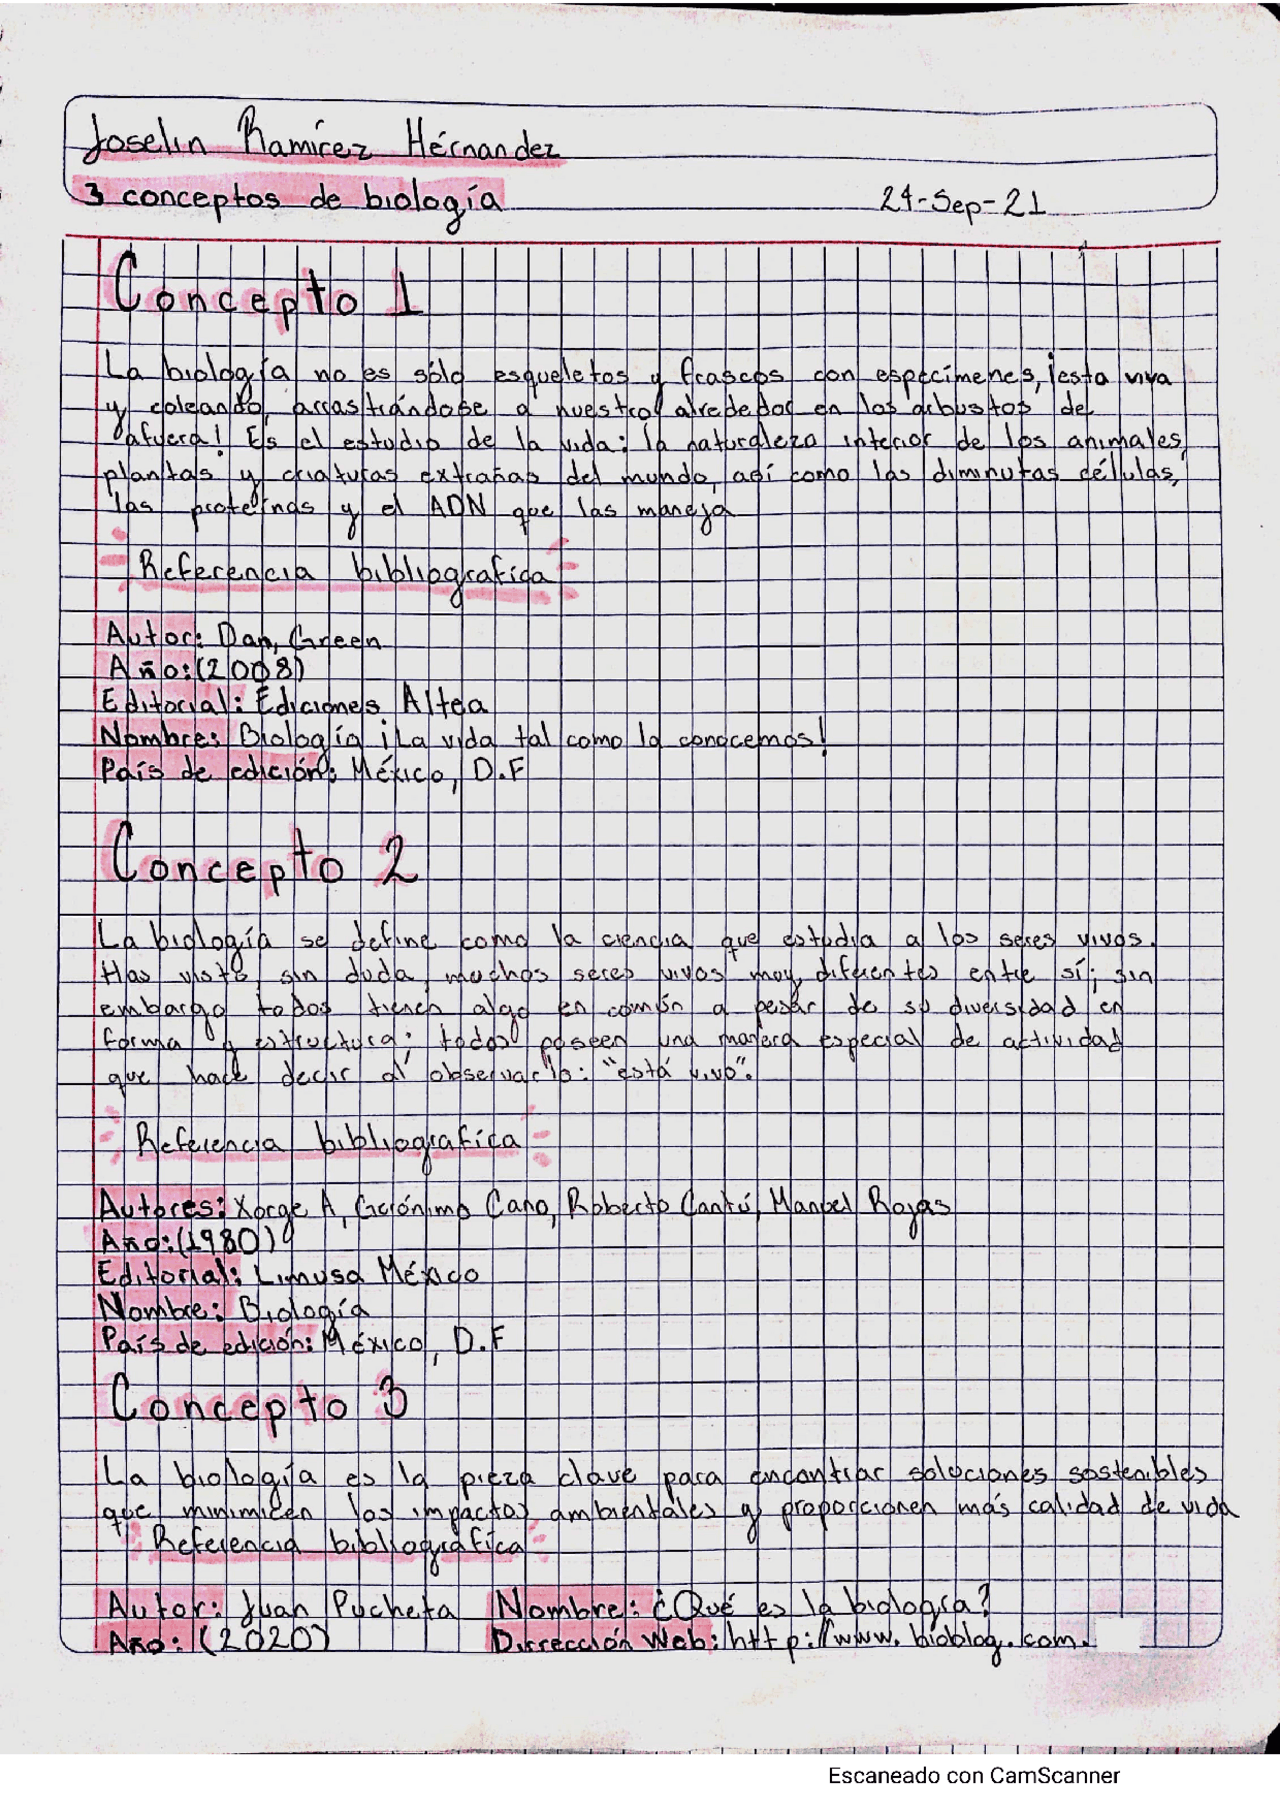 Joselin Ramírez Hérnandez
3 conceptos de biología 24-Sep-21
Concepto 1
La biología no es sólo esqueletos y frascos con especímenes, ¡esta viva
y coleando, arrastrándose a nuestro alrededor en los arbustos de
afuera! Es el estudio de la vida: la naturaleza interior de los animales,
plantas y criaturas extrañas del mundo, así como las diminutas células,
las proteínas y el ADN que las maneja
Referencia bibliografica
Autor: Dan, Green
Año: (2008)
Editorial: Ediciones Altea
Nombre: Biología ¡La vida tal como la conocemos!
País de edición: México, D.F
Concepto 2
La biología se define como la ciencia que estudia a los seres vivos.
Has visto, sin duda, muchos seres vivos muy diferentes entre sí; sin
embargo todos tienen algo en común a pesar de su diversidad en
forma y estructura; todos poseen una manera especial de actividad
que hace decir al observarlo: "está vivo".
Referencia bibliografica
Autores: Xorge A, Gerónimo Cano, Roberto Cantú, Manuel Rojas
Año: (1980)
Editorial: Limusa México
Nombre: Biología
País de edición: México, D.F
Concepto 3
La biología es la pieza clave para encontrar soluciones sostenibles
que minimicen los impactos ambientales y proporcionen más calidad de vida
Referencia bibliográfica
Autor: Juan Pucheta Nombre: ¿Qué es la biología?
Año: (2020) Dirrección Web: http://www.bioblog.com.
Escaneado con CamScanner